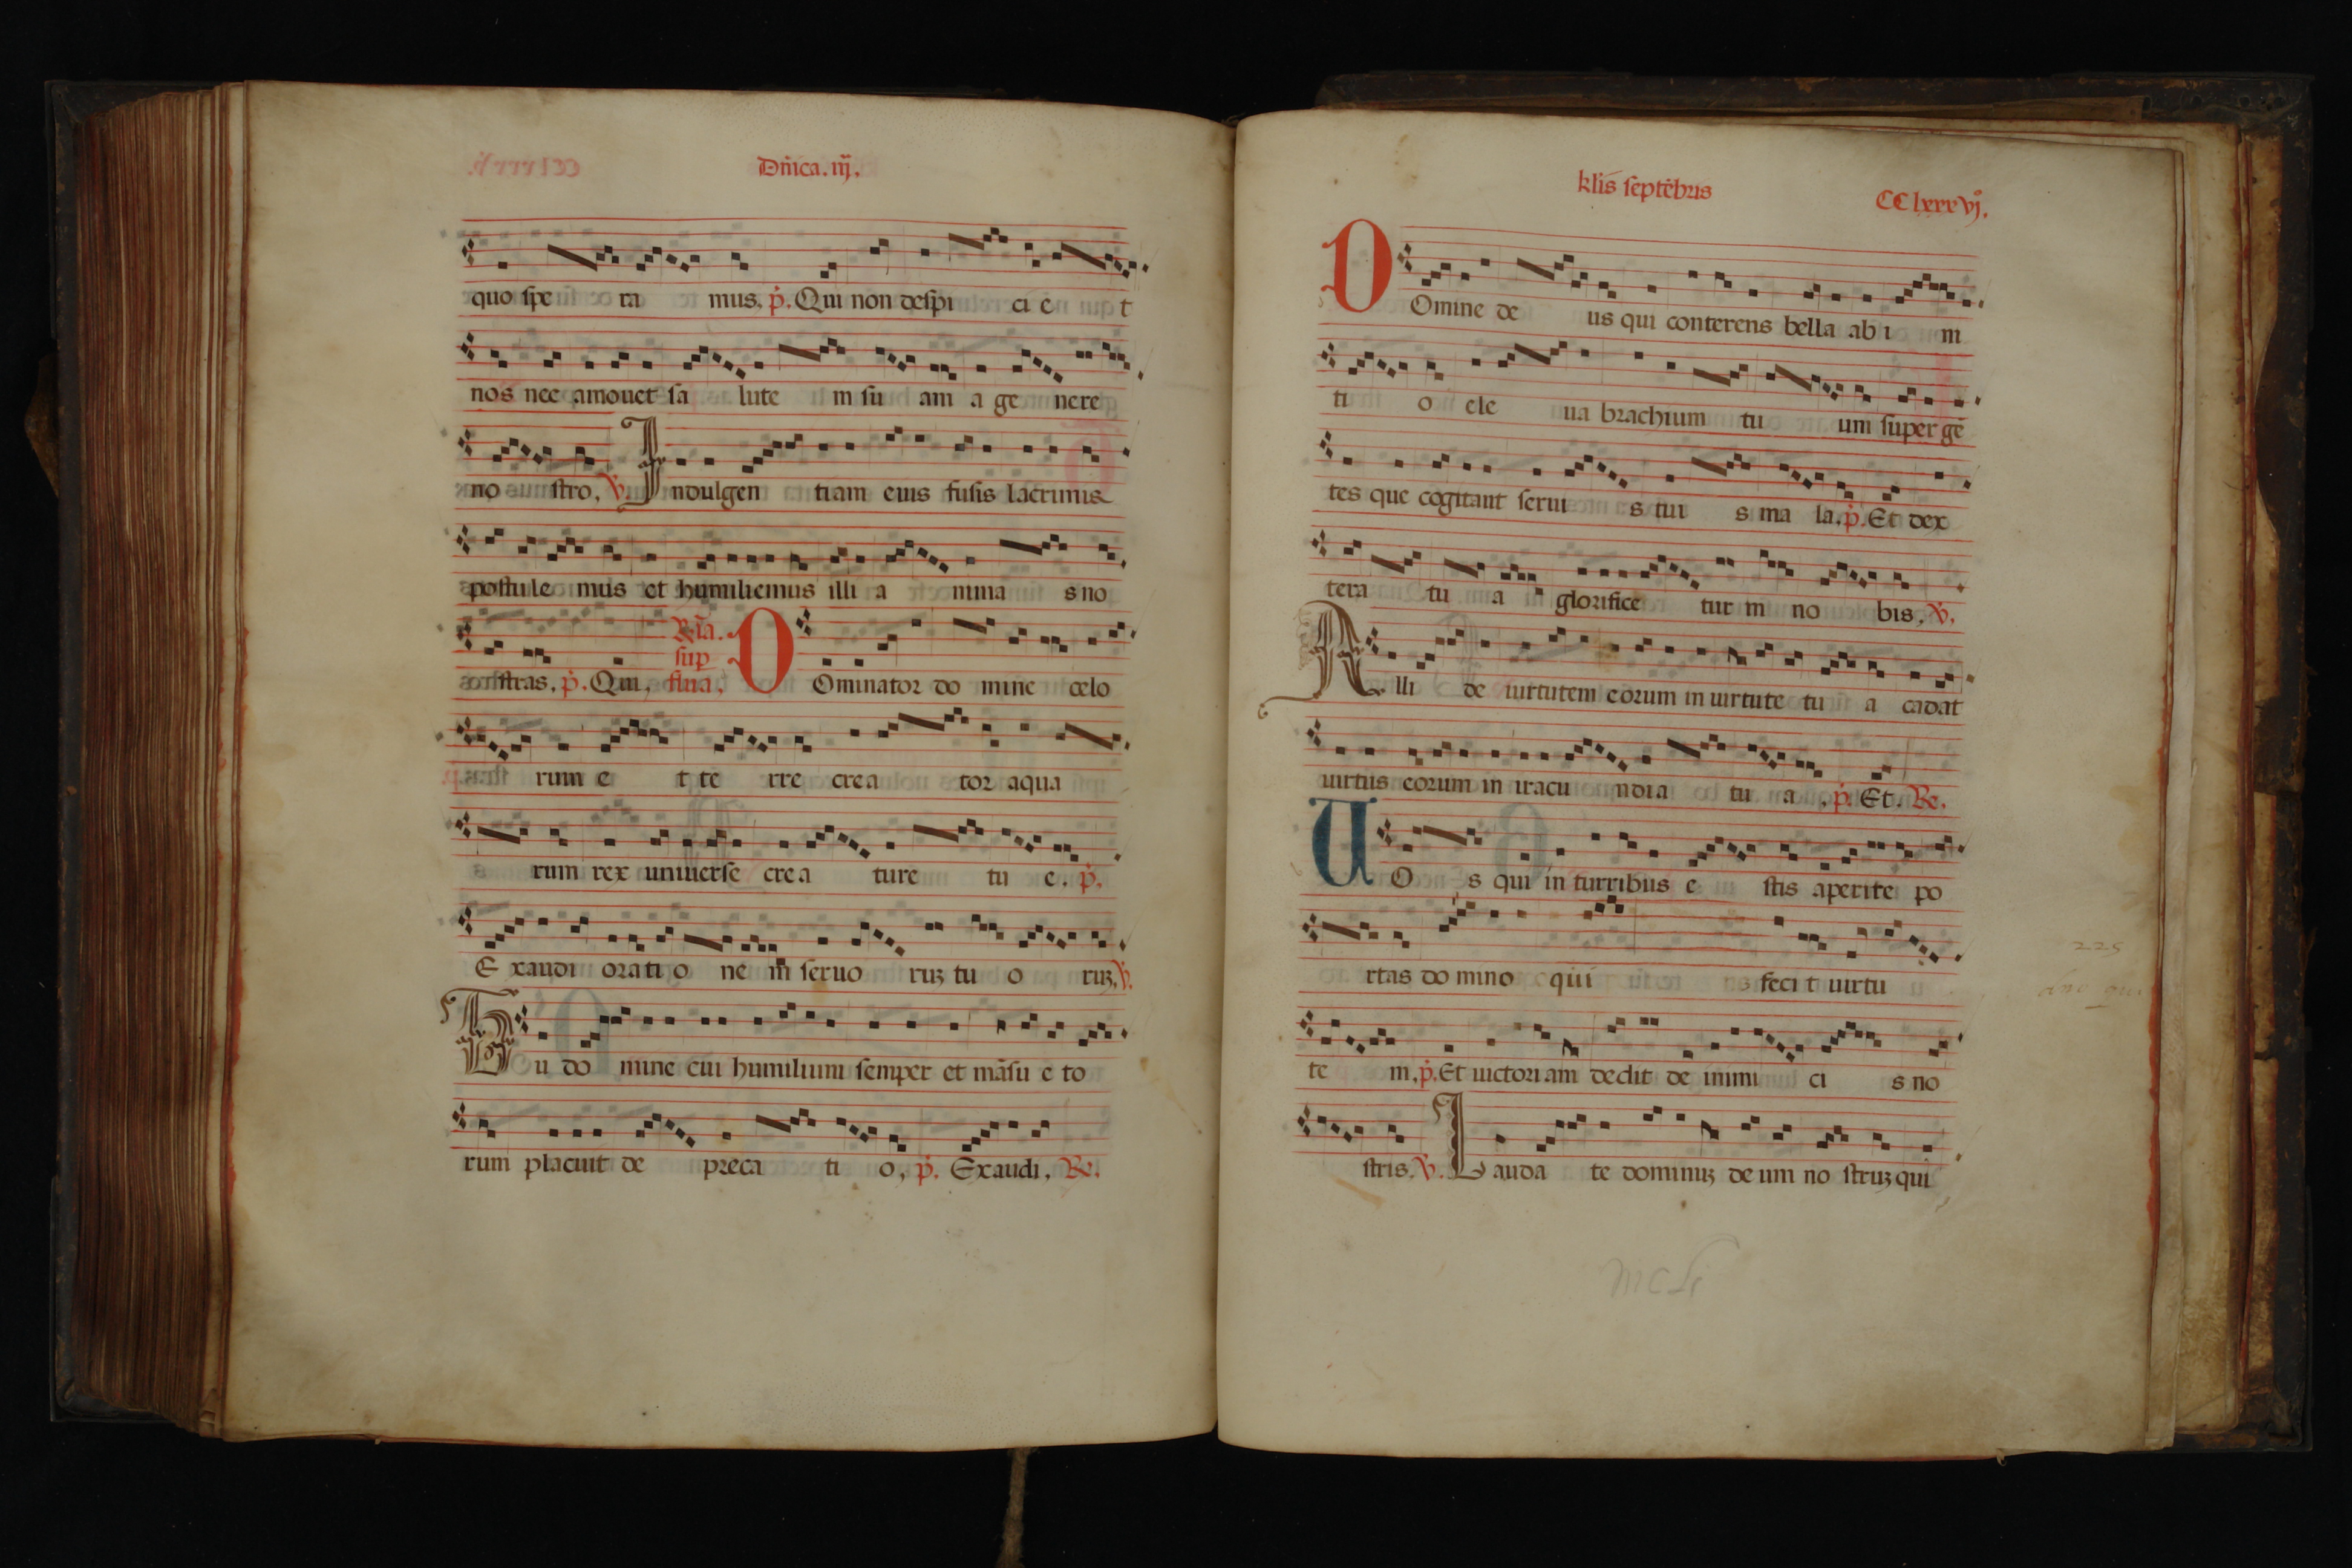 Dñica. iij.
quo spe ra mus. p̃. Qui non despi ci e t
nos nec amouet sa lute m su am a ge nere
no stro, ꝟ. Indulgen tiam eius fusis lacrimis
postule mus et humiliemus illi a nima s no
stras, p̃. Qui, R̃ia. sup flu̅ia, DOminator do mine celo
rum e t te rre crea tor aqua
rum rex uniuerse crea ture tu e. p̃.
E xaudi orati o ne m seruo ruꝫ tu o ruꝫ, ꝟ.
Tu do mine cui humilium semper et mãsu e to
rum placuit de preca ti o, p̃. Exaudi, Re.
klis septẽbris CClxxxvjº.
DOmine de us qui conterens bella ab i ni
ti o ele ua brachium tu um super gẽ
tes que cogitant serui s tui s ma la. p̃. Et dex
tera tu a glorifice tur in no bis, ꝟ.
Alli de uirtutem eorum in uirtute tu a cadat
uirtus eorum in iracu ndia tu a, p̃. Et. Re.
UO s qui in turribus e stis aperite po
rtas do mino qui feci t uirtu
te m, p̃. Et uictori am dedit de inimi ci s no
stris. ꝟ. Lauda te dominuꝫ de um no struꝫ qui
225